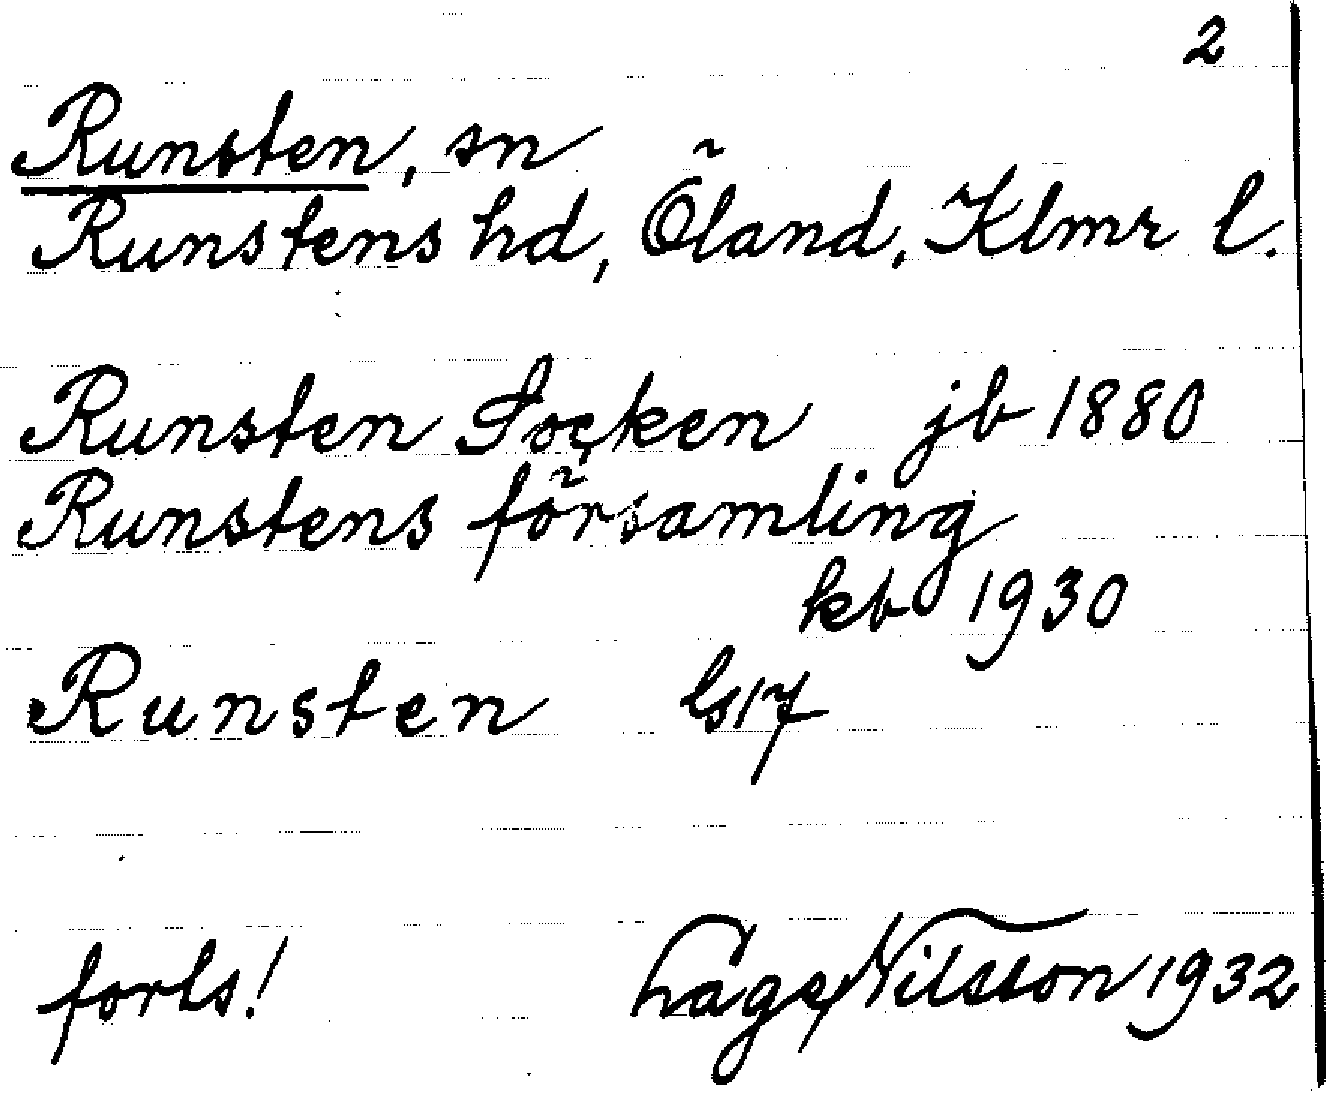 2
Runsten, sn
Runstens hd, Öland, Klmr l.
Runsten Socken jb 1880
Runstens församling
kb 1930
Runsten ls 17
forts! Nilsson 1932